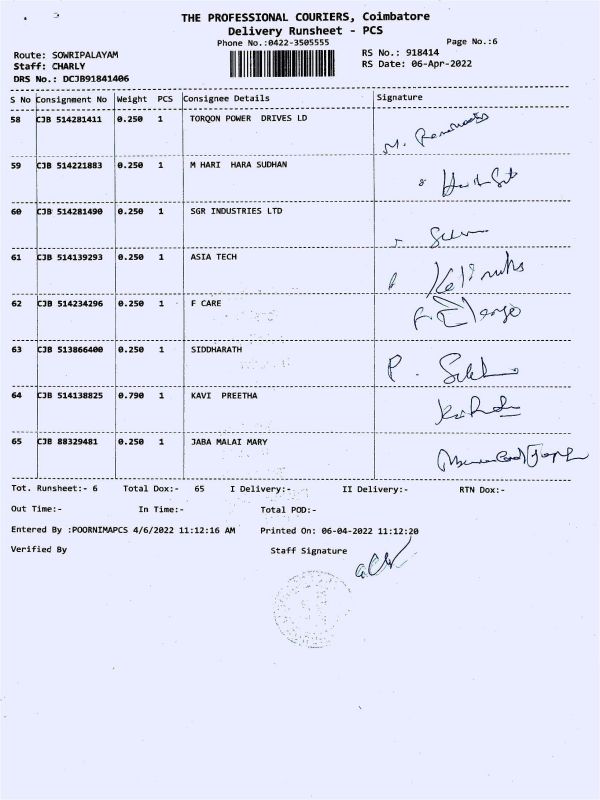 THE PROFESSIONAL COURIERS, Coimbatore
Delivery Runsheet - PCS
Phone No.:0422-3505555
Page No.:6
Route: SOWRIPALAYAM
RS No.: 918414
Staff: CHARLY
RS Date: 06-Apr-2022
DRS No.: DCJB91841406
S No Consignment No Weight PCS Consignee Details Signature
58 CJB 514281411 0.250 1 TORQON POWER DRIVES LD
59 CJB 514221883 0.250 1 M HARI HARA SUDHAN
60 CJB 514281490 0.250 1 SGR INDUSTRIES LTD
61 CJB 514139293 0.250 1 ASIA TECH
62 CJB 514234296 0.250 1 F CARE
63 CJB 513866400 0.250 1 SIDDHARATH
64 CJB 514138825 0.790 1 KAVI PREETHA
65 CJB 88329481 0.250 1 JABA MALAI MARY
Tot. Runsheet:- 6 Total Dox:- 65 I Delivery:- II Delivery:- RTN Dox:-
Out Time:- In Time:- Total POD:-
Entered By :POORNIMAPCS 4/6/2022 11:12:16 AM Printed On: 06-04-2022 11:12:20
Verified By Staff Signature